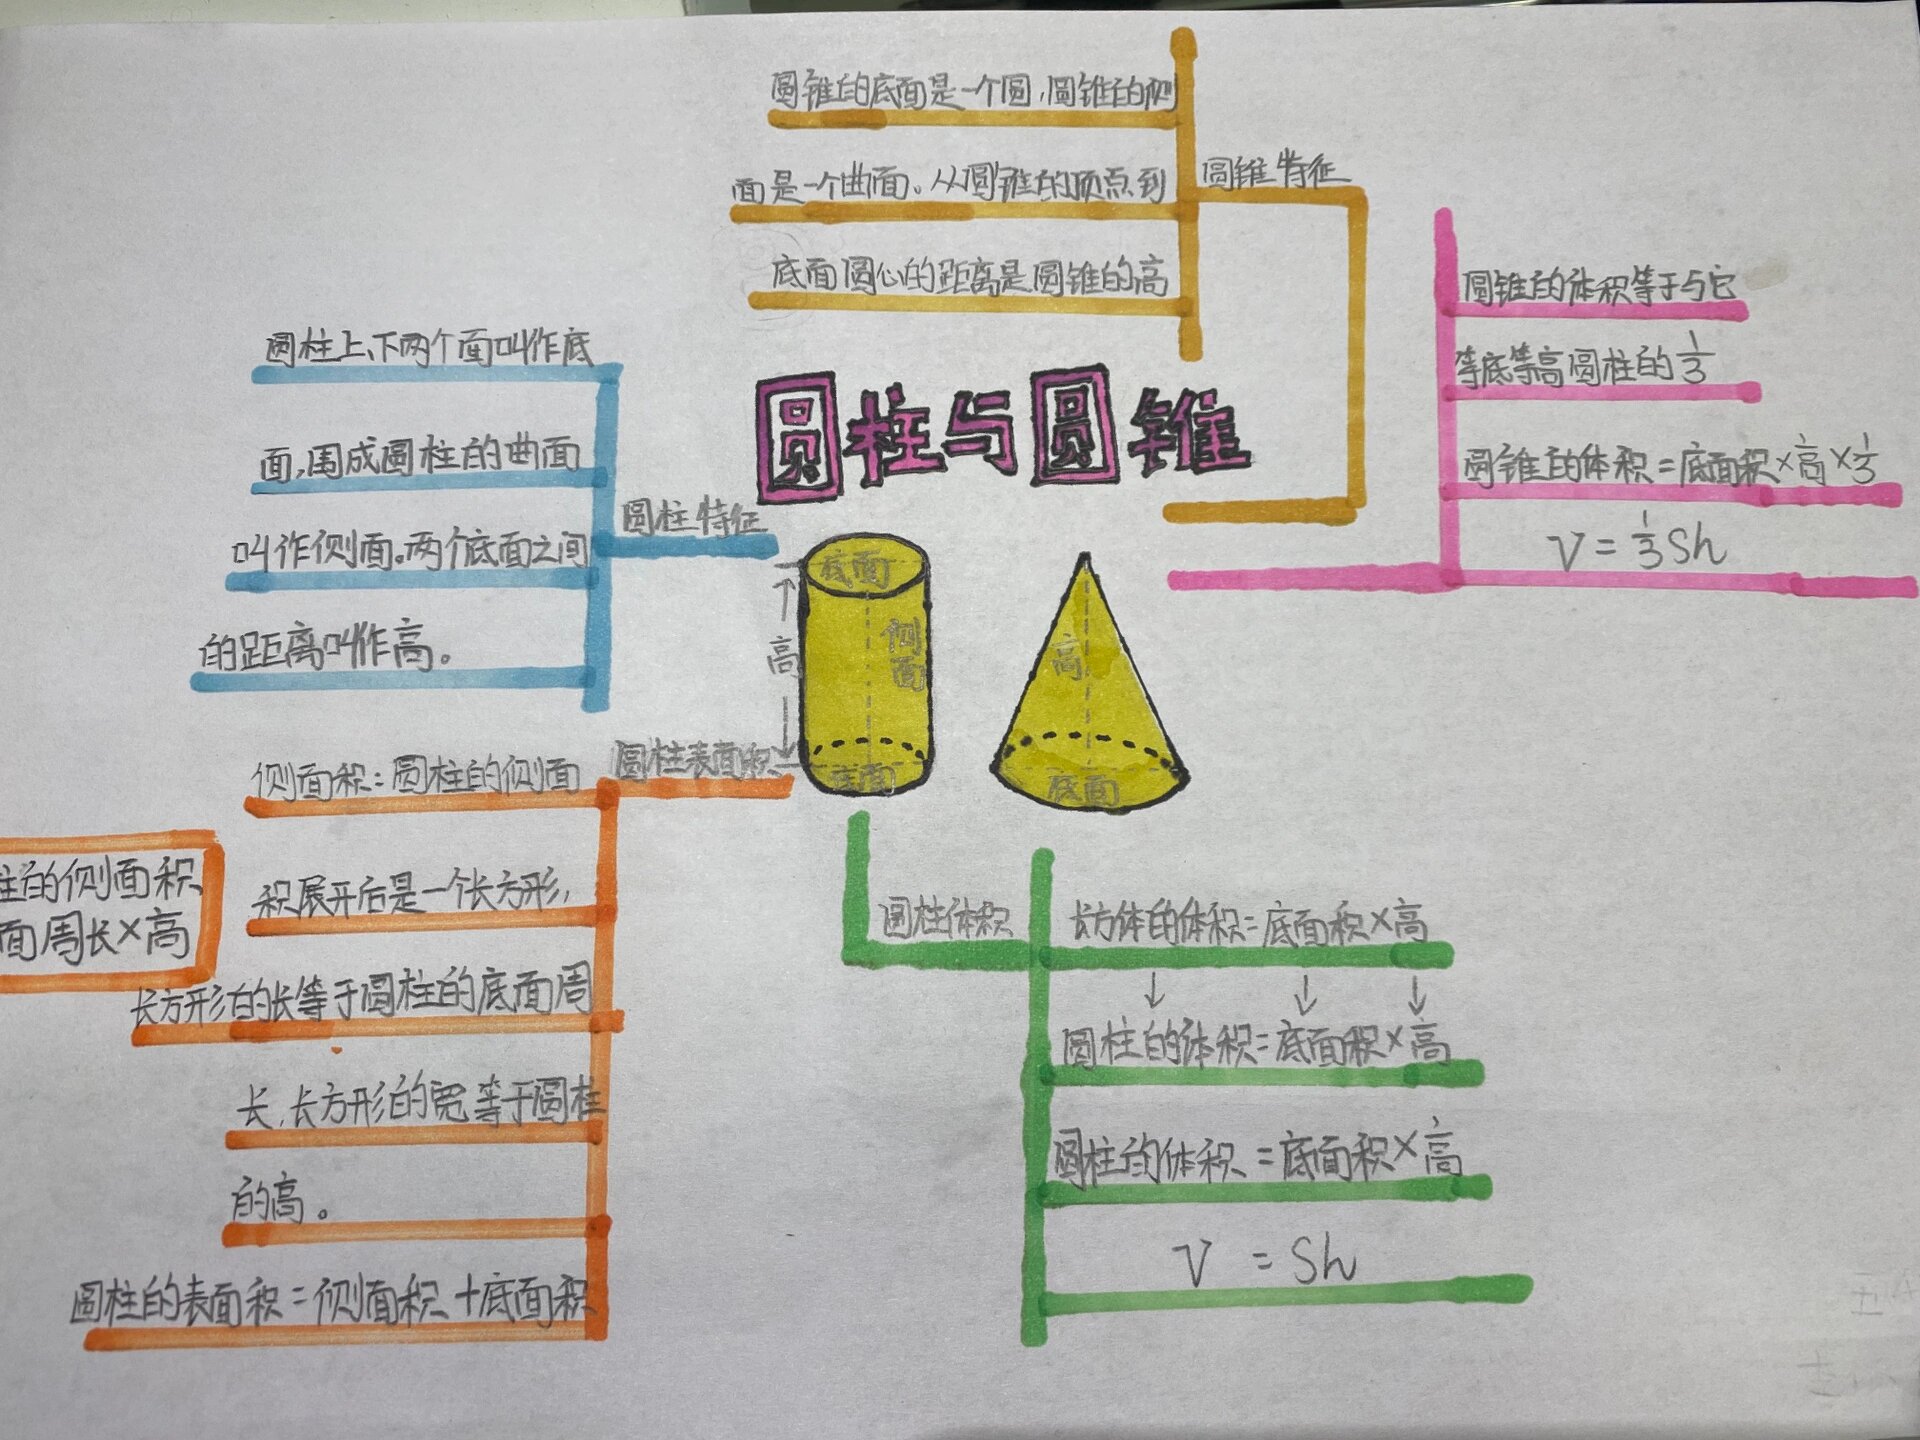 圆锥的底面是一个圆,圆锥的侧
面是一个曲面。从圆锥的顶点到
底面圆心的距离是圆锥的高
圆锥特征
圆锥的体积等于与它
等底等高圆柱的1/3
圆锥的体积=底面积×高×1/3
V=1/3Sh
圆柱与圆锥
圆柱上、下两个面叫作底
面,围成圆柱的曲面
叫作侧面。两个底面之间
的距离叫作高。
圆柱特征
底面
高
侧面
底面
高
底面
圆柱表面积
侧面积:圆柱的侧面
积展开后是一个长方形,
长方形的长等于圆柱的底面周
长,长方形的宽等于圆柱
的高。
圆柱的表面积=侧面积+底面积
柱的侧面积
面周长×高
圆柱体积
长方体的体积=底面积×高
↓ ↓ ↓
圆柱的体积=底面积×高
圆柱的体积=底面积×高
V=Sh